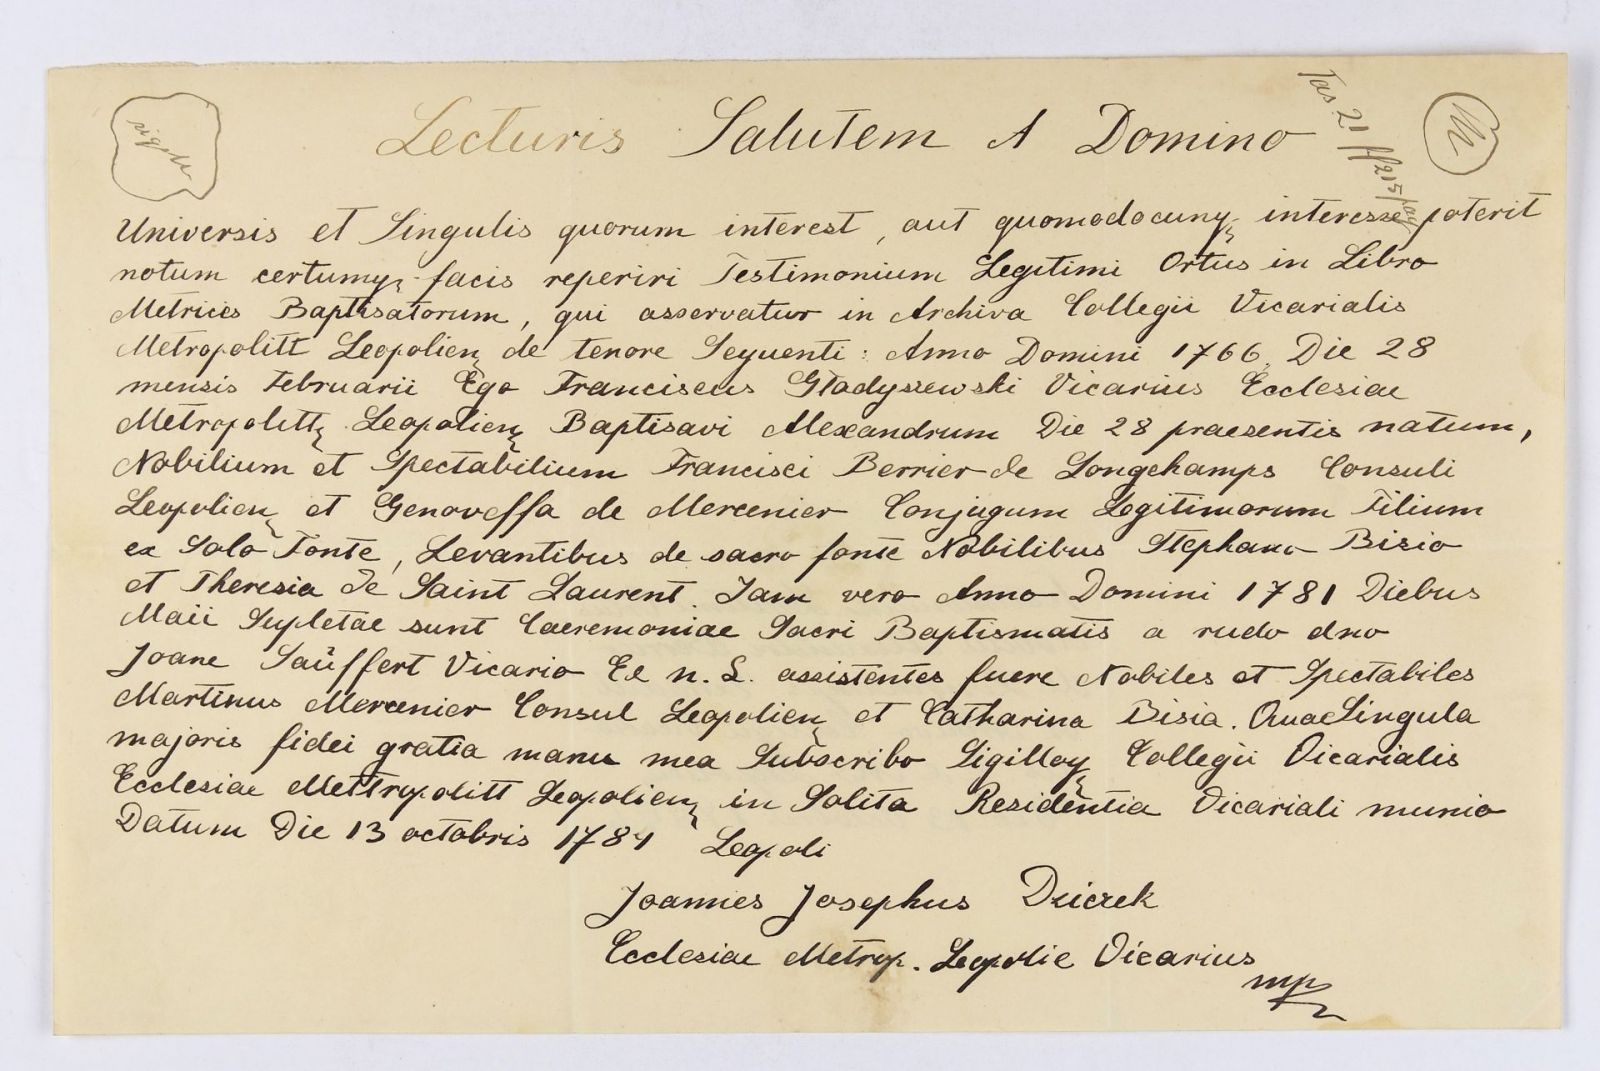 Lecturis Salutem A Domino
Universis et Singulis quorum interest, aut quomodocunq interesse poterit
notum certumq facis reperiri Testimonium Legitimi Ortus in Libro
Metrices Baptisatorum, qui asservatur in Archiva Collegii Vicarialis
Metropolitt Leopolien de tenore Sequenti: Anno Domini 1766. Die 28
mensis Februarii Ego Franciscus Gładyszewski Vicarius Ecclesiae
Metropolitt Leopolien Baptisavi Alexandrum Die 28 praesentis natum,
Nobilium et Spectabilium Francisci Berrier de Longchamps Consuli
Leopolien et Genoveffa de Mercenier Conjugum Legitimorum Filium
ex Solo Fonte, Levantibus de sacro fonte Nobilibus Stephano Bisio
et Theresia de Saint Laurent. Jam vero Anno Domini 1781 Diebus
Maii Supletae sunt Caeremoniae Sacri Baptismatis a rndo dno
Joane Saüffert Vicario Ee n. L. assistentes fuere Nobiles et Spectabiles
Martinus Mercenier Consul Leopolien et Catharina Bisia. Quae Singula
majoris fidei gratia manu mea Subscribo Sigilloq Collegii Vicarialis
Ecclesiae Mettropolitt Leopolien in Solita Residentia Vicariali munio
Datum Die 13 octobris 1784 Leopoli
Joannes Josephus
Ecclesiae Metrop. Leopolie Vicarius
mp